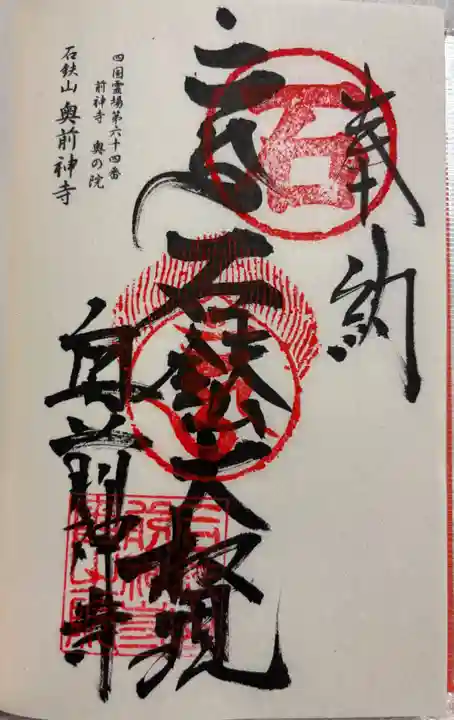 奉納
石鈇山大権現
奥前神寺
四国霊場第六十四番
前神寺 奥の院
石鈇山 奥前神寺
石